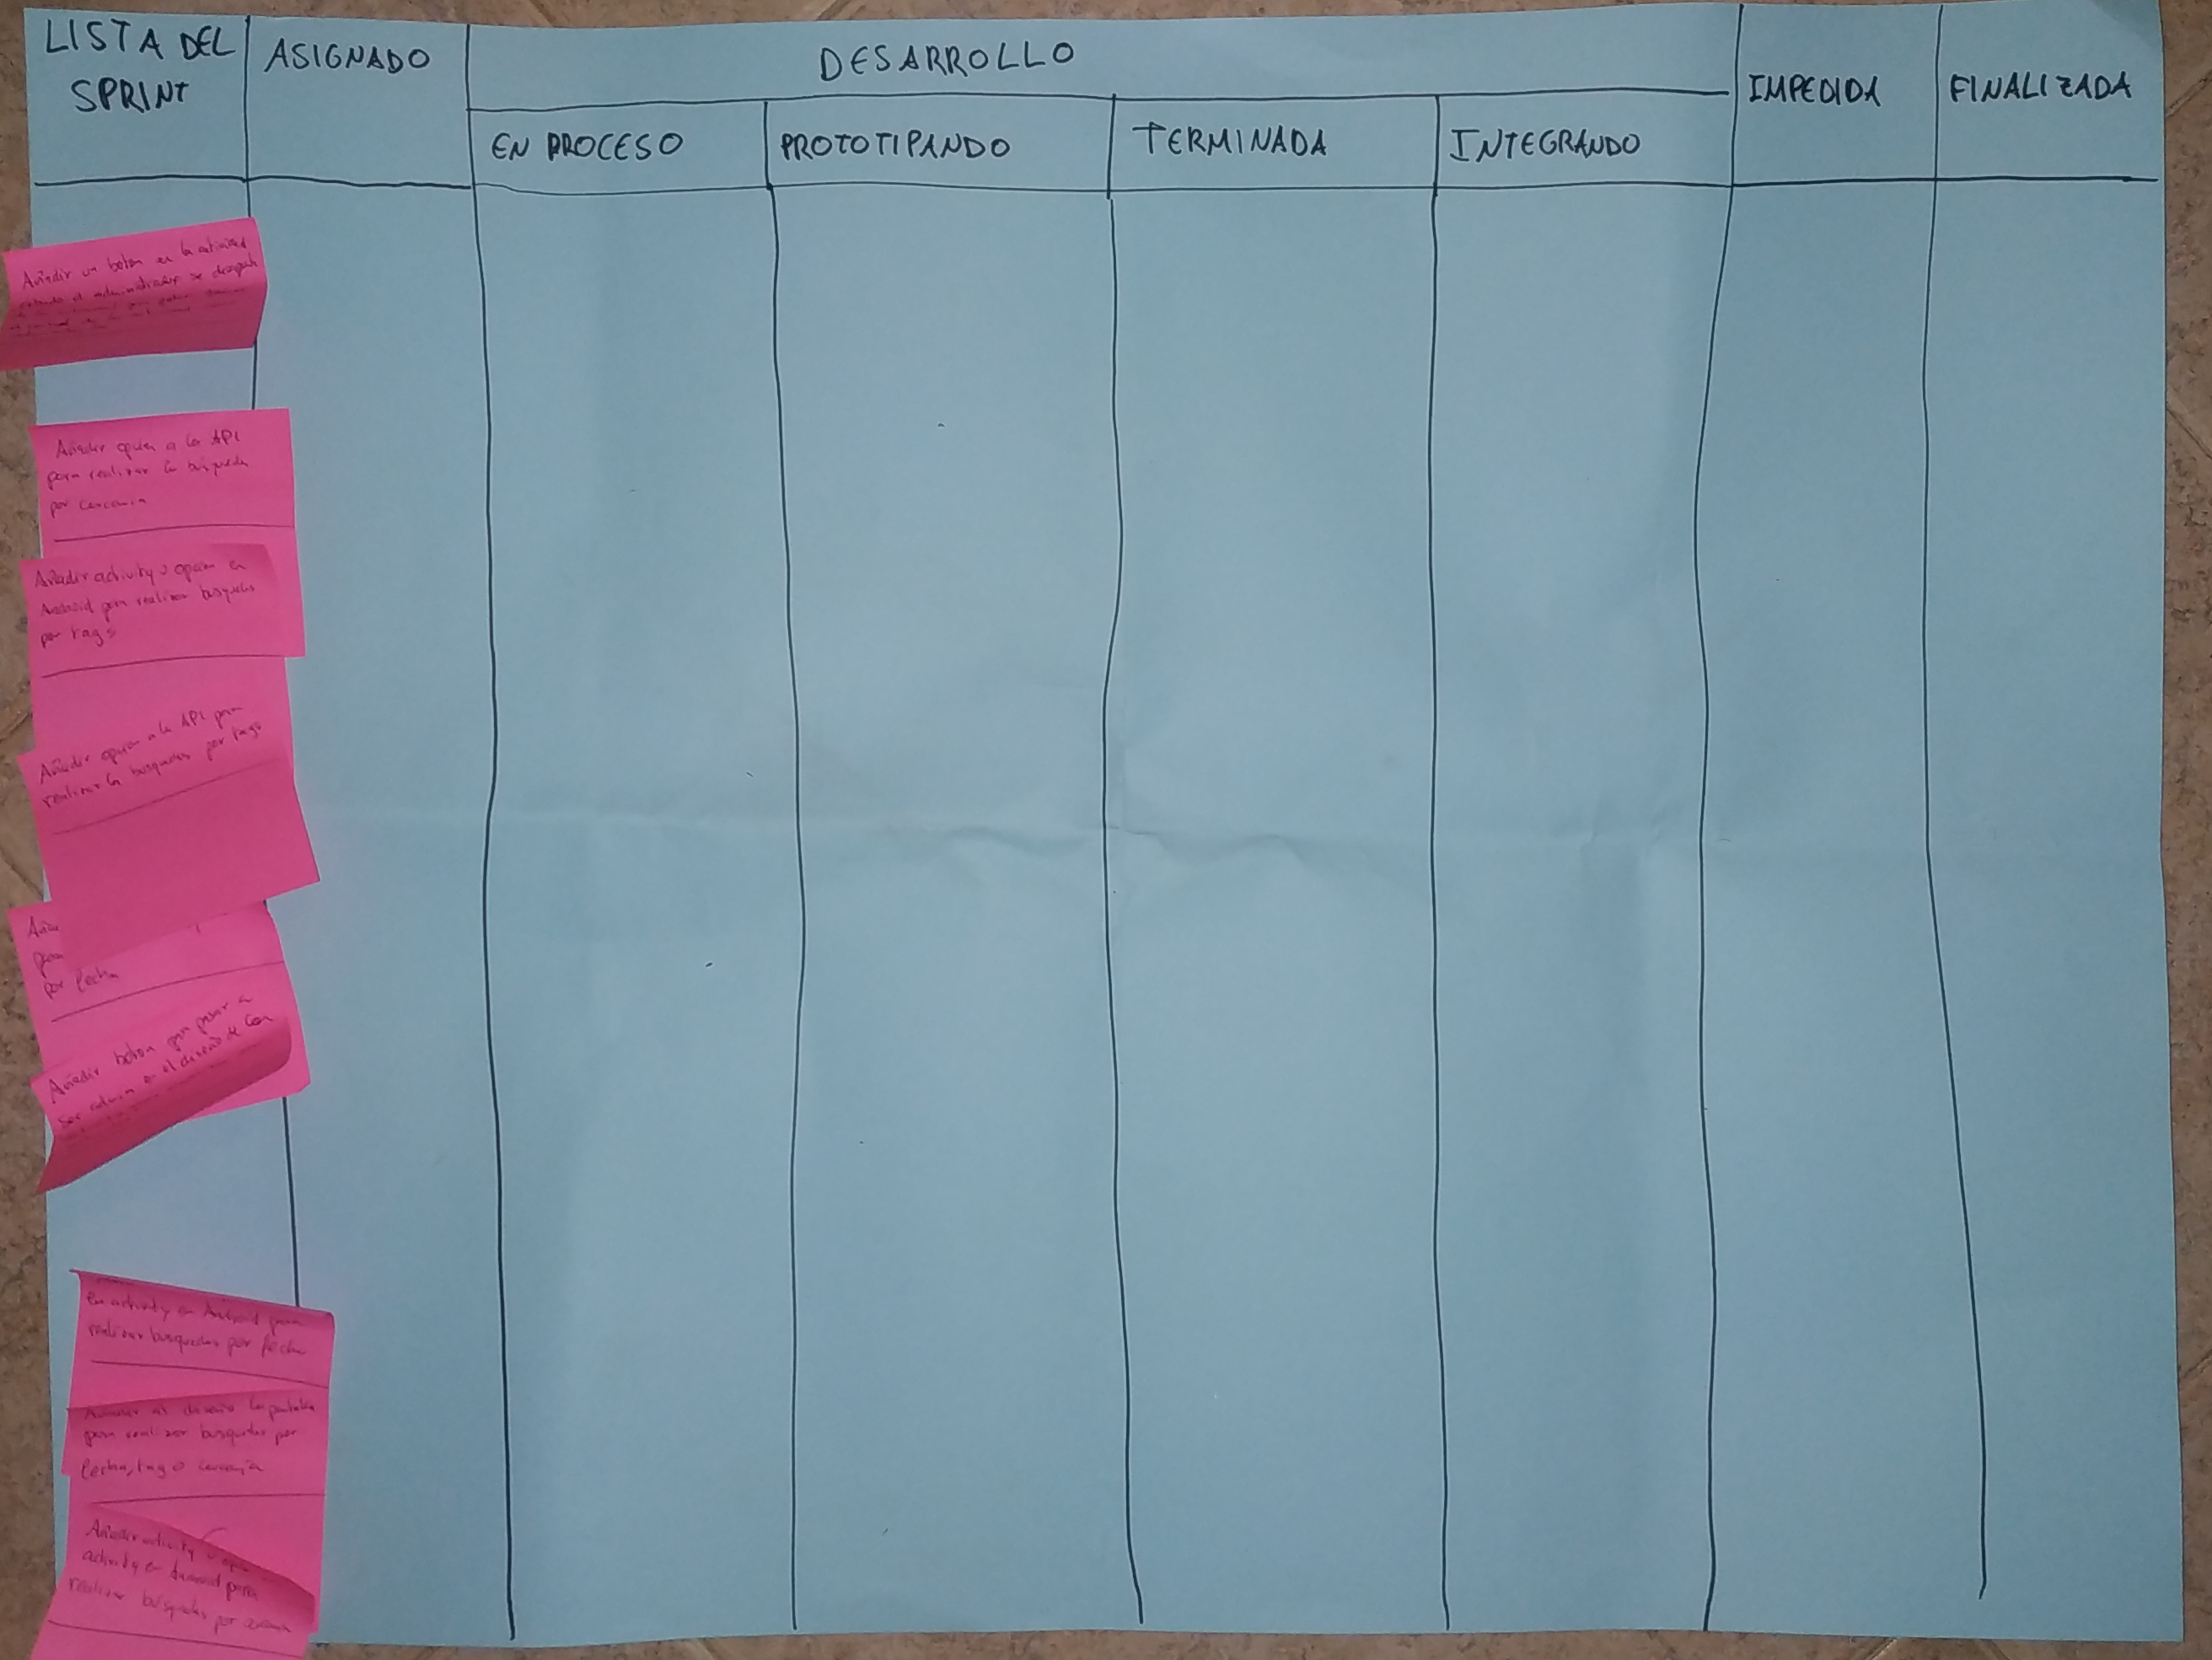 LISTA DEL
SPRINT
ASIGNADO
DESARROLLO
EN PROCESO
PROTOTIPANDO
TERMINADA
INTEGRANDO
IMPEDIDA
FINALIZADA
Añadir un boton en la actividad
administrador se
Añadir opcion a la API
para realizar la busqueda
por cercania
Añadir activity u opcion en
Android para realizar busquedas
por tags
Añadir opcion a la API para
realizar la busquedas por tags
para
por fecha
Añadir boton para pasar a
ser admin en el diseño de
activity en Android para
realizar busquedas por fecha
Añadir al diseño la pantalla
para realizar busquedas por
fecha, tag o cercania
Añadir activity u
activity en Android para
realizar búsquedas por cercania